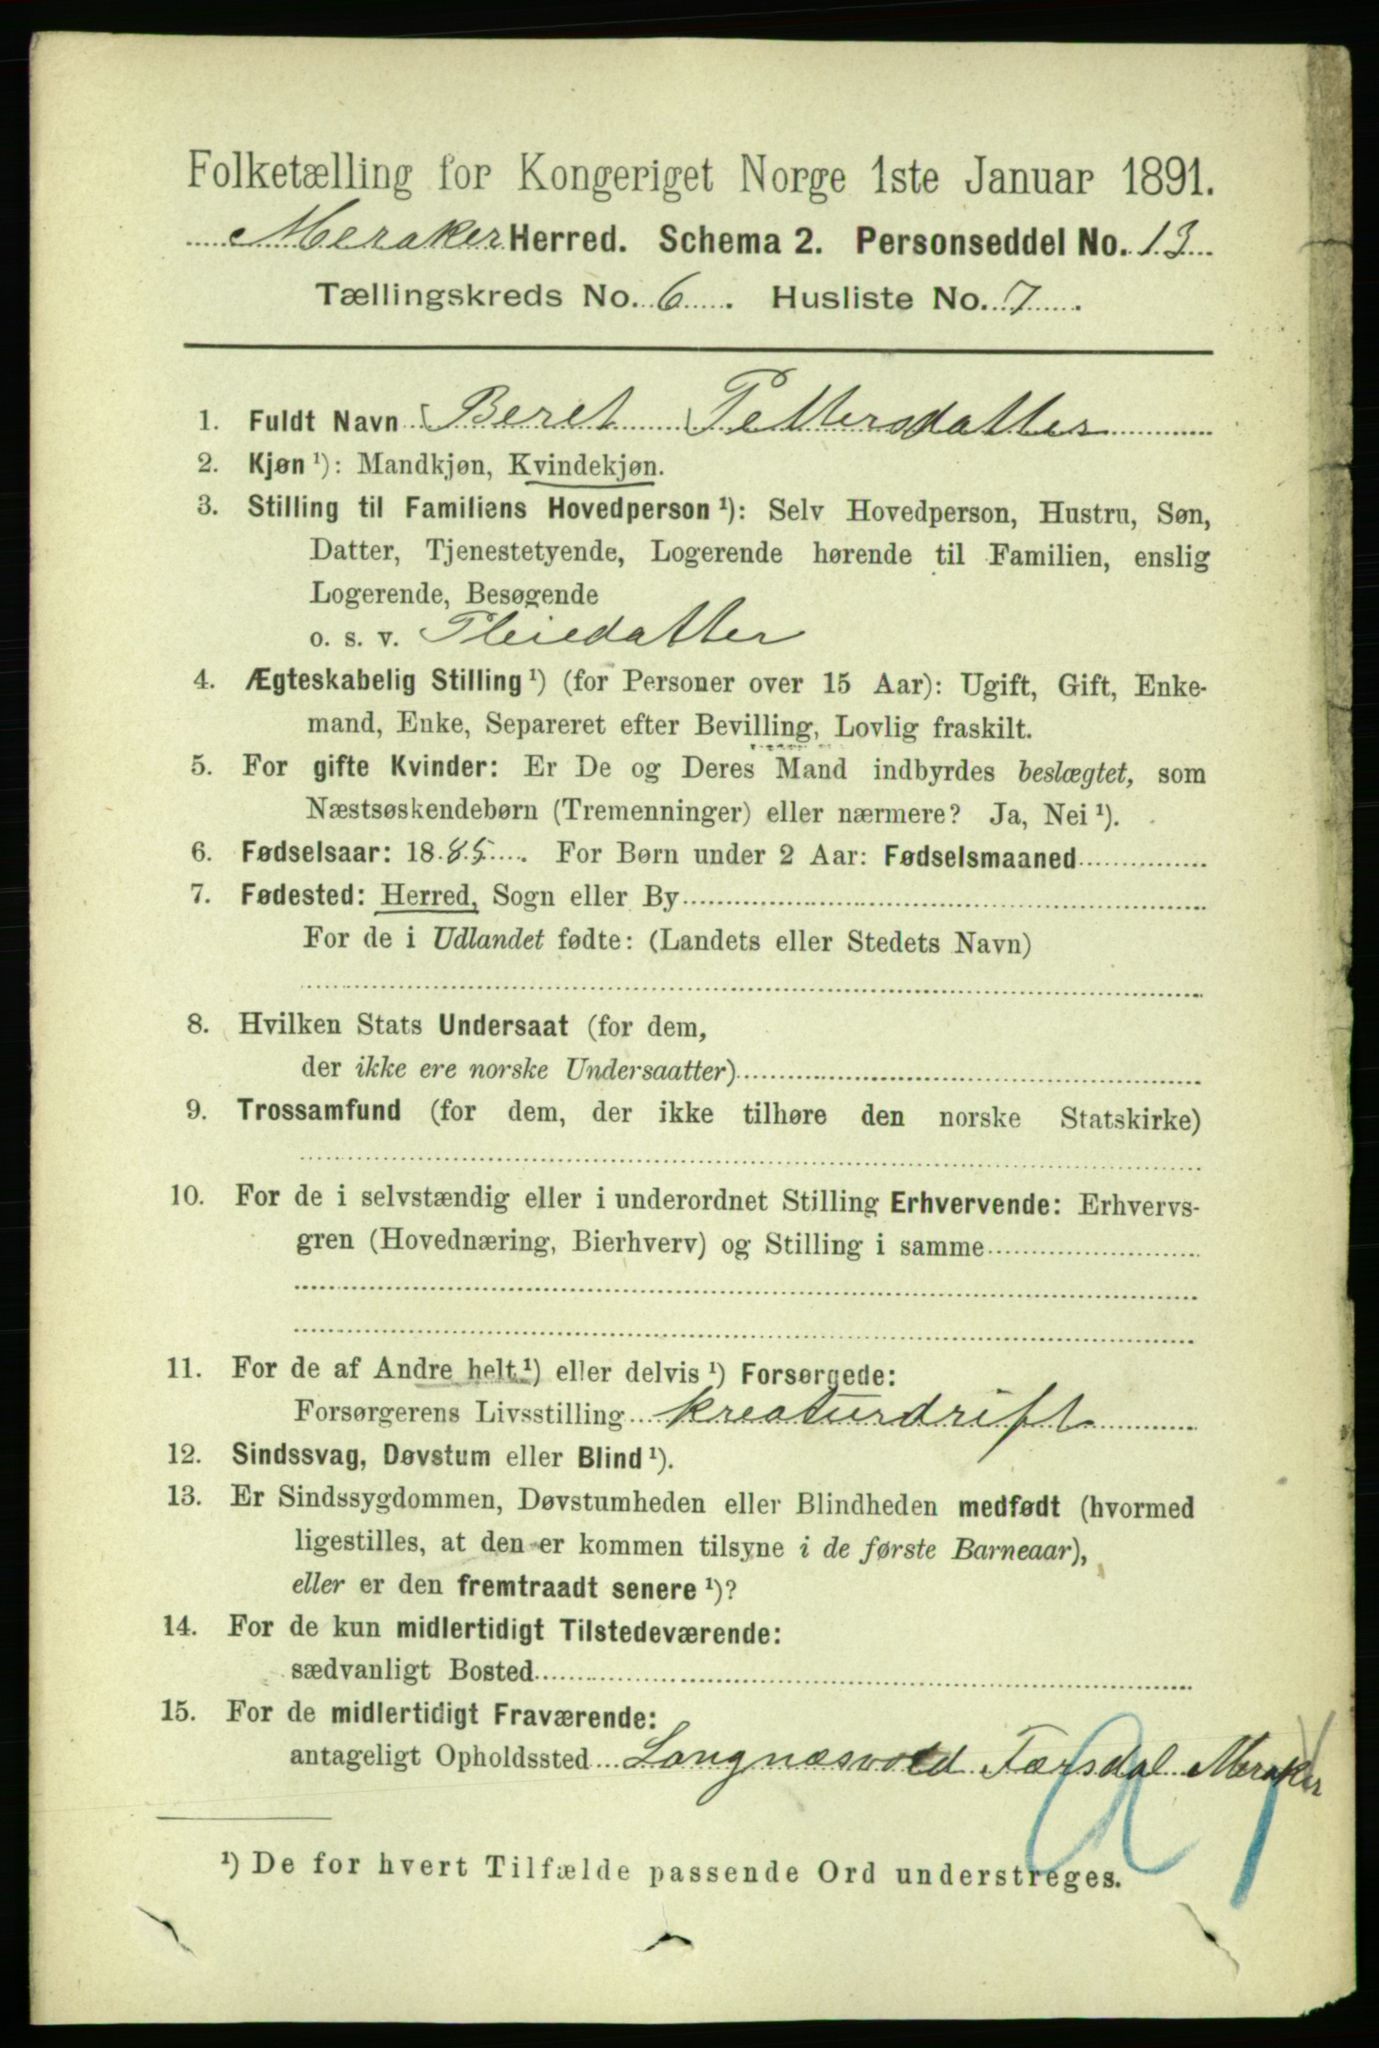 Folketælling for Kongeriget Norge 1ste Januar 1891.
Meraker Herred. Schema 2. Personseddel No. 13
Tællingskreds No. 6. Husliste No. 7.
1. Fuldt Navn Beret Pettersdatter
2. Kjøn ¹): Mandkjøn, Kvindekjøn.
3. Stilling til Familiens Hovedperson ¹): Selv Hovedperson, Hustru, Søn,
Datter, Tjenestetyende, Logerende hørende til Familien, enslig
Logerende, Besøgende
o. s. v. Pleiedatter
4. Ægteskabelig Stilling ¹) (for Personer over 15 Aar): Ugift, Gift, Enke-
mand, Enke, Separeret efter Bevilling, Lovlig fraskilt.
5. For gifte Kvinder: Er De og Deres Mand indbyrdes beslægtet, som
Næstsøskendebørn (Tremenninger) eller nærmere? Ja, Nei ¹).
6. Fødselsaar: 1885. For Børn under 2 Aar: Fødselsmaaned
7. Fødested: Herred, Sogn eller By
For de i Udlandet fødte: (Landets eller Stedets Navn)
8. Hvilken Stats Undersaat (for dem,
der ikke ere norske Undersaatter)
9. Trossamfund (for dem, der ikke tilhøre den norske Statskirke)
10. For de i selvstændig eller i underordnet Stilling Erhvervende: Erhvervs-
gren (Hovednæring, Bierhverv) og Stilling i samme
11. For de af Andre helt ¹) eller delvis ¹) Forsørgede:
Forsørgerens Livsstilling kreaturdrift
12. Sindssvag, Døvstum eller Blind ¹).
13. Er Sindssygdommen, Døvstumheden eller Blindheden medfødt (hvormed
ligestilles, at den er kommen tilsyne i de første Barneaar),
eller er den fremtraadt senere ¹)?
14. For de kun midlertidigt Tilstedeværende:
sædvanligt Bosted
15. For de midlertidigt Fraværende:
antageligt Opholdssted Langnæsvold Færsdal Meraker
¹) De for hvert Tilfælde passende Ord understreges.